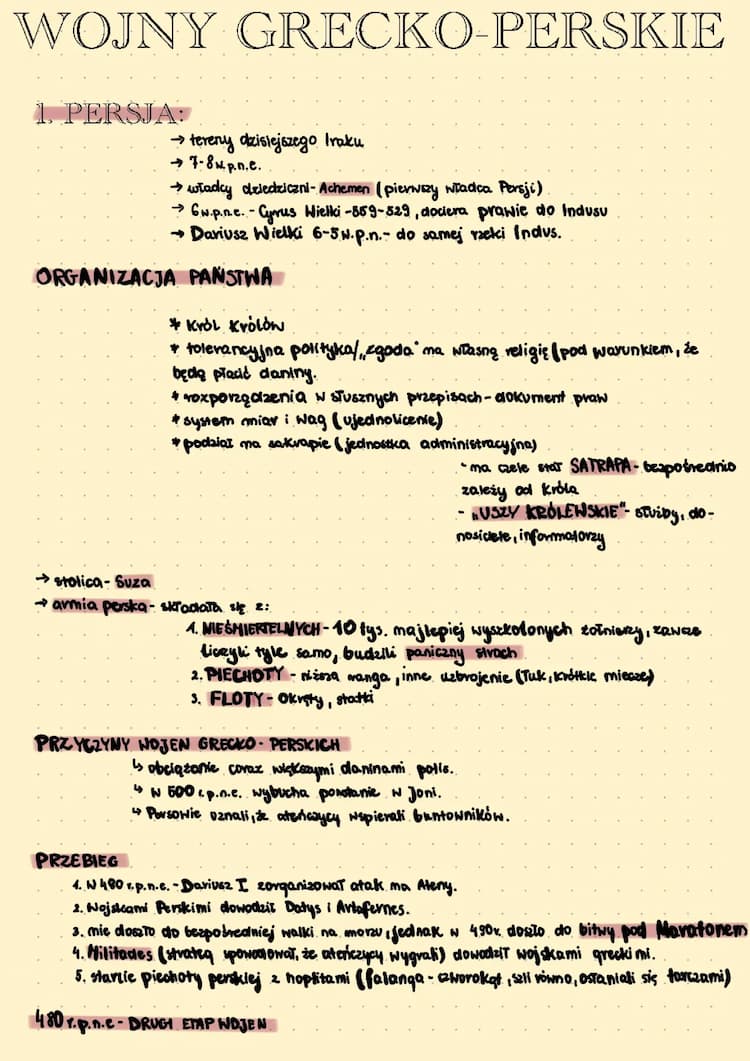 WOJNY GRECKO-PERSKIE
1. PERSJA:
→ tereny dzisiejszego Iraku
→ 7-8w.p.n.e.
→ władcy dziedziczni- Achemen (pierwszy władca Persji)
→ 6w.p.n.e. - Cyrus Wielki -559-529, dociera prawie do Indusu
→ Dariusz Wielki 6-5w.p.n.- do samej rzeki Indus.
ORGANIZACJA PAŃSTWA
* Król Królów
* tolerancyjna polityka/„zgoda" na własną religię (pod warunkiem, że
będą płacić daniny.
* rozporządzenia w słusznych przepisach - dokument praw
* system miar i wag (ujednolicenie)
* podział na satrapie (jednostka administracyjna)
- na czele stał SATRAPA - bezpośrednio
zależy od króla
- „USZY KRÓLEWSKIE"- służby, do-
nosiciele, informatorzy
→ stolica- Suza
→ armia perska- składała się z:
1. NIEŚMIERTELNYCH - 10 tys. najlepiej wyszkolonych żołnierzy, zawsze
liczyli tyle samo, budzili paniczny strach
2. PIECHOTY - niższa ranga, inne uzbrojenie (łuk, krótkie miecze)
3. FLOTY - okręty, statki
PRZYCZYNY WOJEN GRECKO-PERSKICH
↳ obciążanie coraz większymi daninami polis.
↳ W 500 r.p.n.e. wybucha powstanie w Joni.
↳ Persowie uznali, że ateńczycy wspierali buntowników.
PRZEBIEG
1. W 490 r.p.n.e. - Dariusz I zorganizował atak na Ateny.
2. Wojskami Perskimi dowodził Datys i Artafernes.
3. nie doszło do bezpośredniej walki na morzu, jednak w 490r. doszło do bitwy pod Maratonem
4. Miltiades (strateg spowodował, że ateńczycy wygrali) dowodził wojskami greckimi.
5. starcie piechoty perskiej z hoplitami (falanga - czworokąt, szli równo, osłaniali się tarczami)
480 r.p.n.e - DRUGI ETAP WOJEN